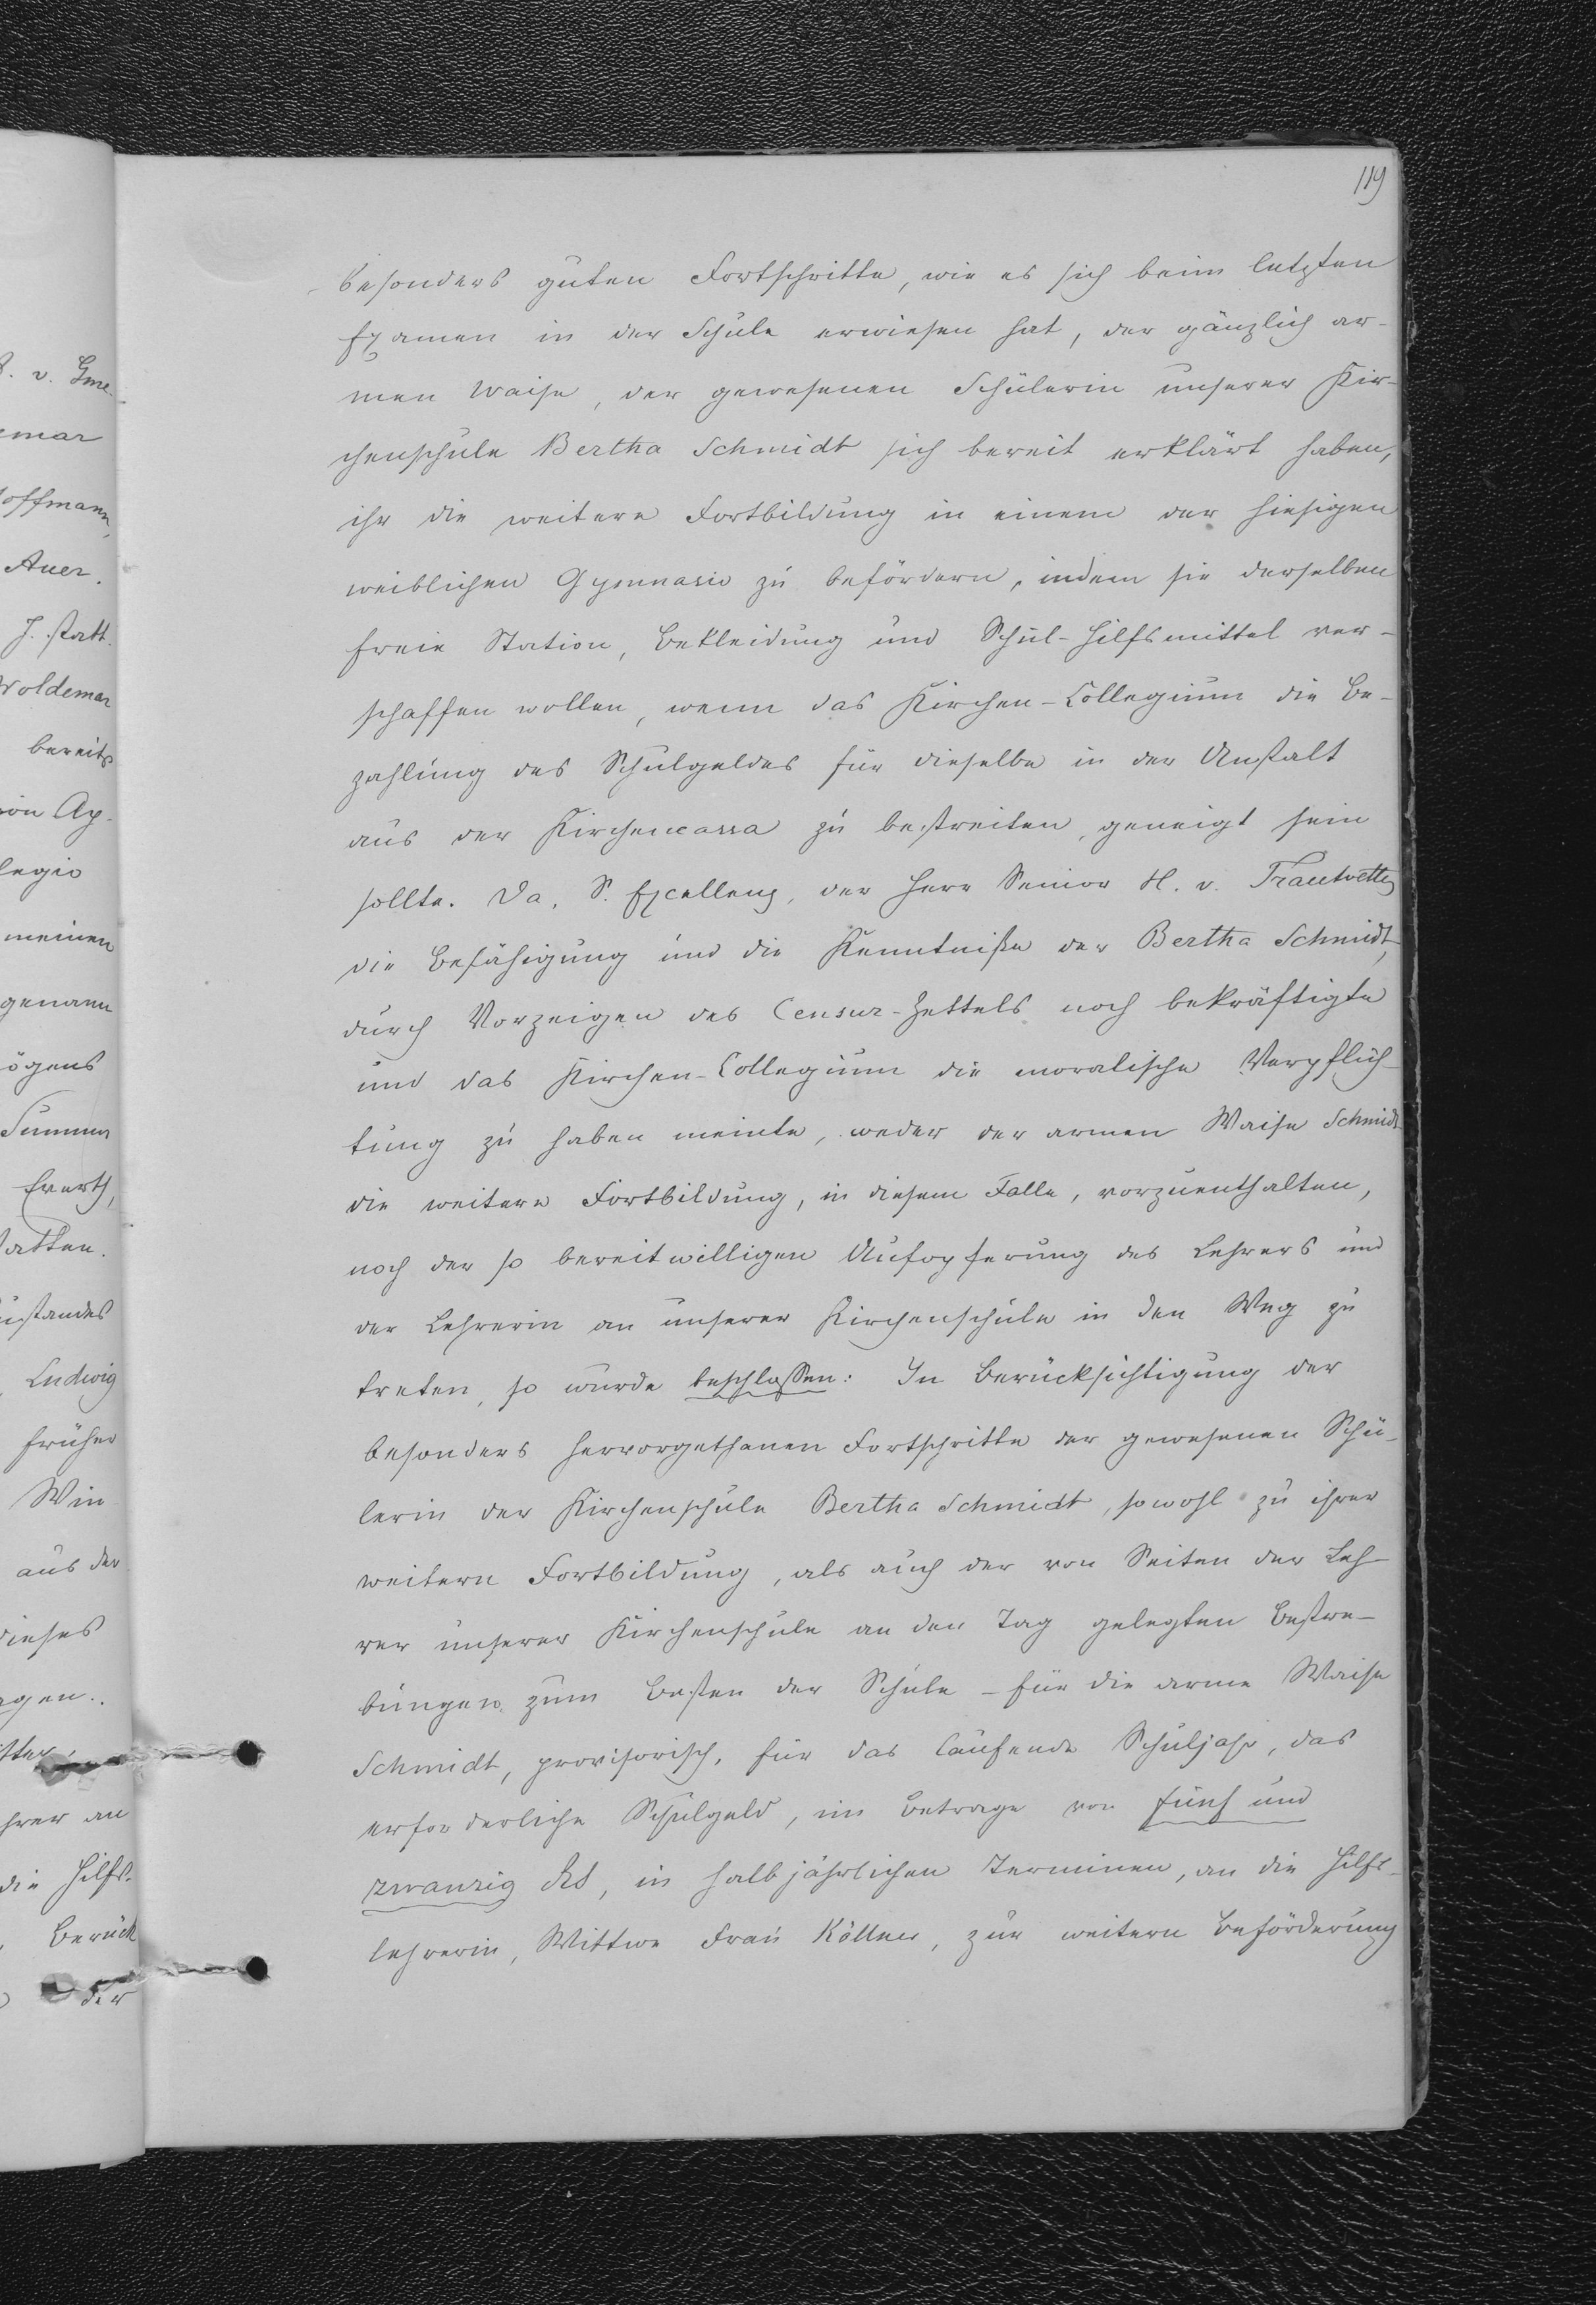 119
besonders guten Fortschritte, wie es sich beim letzten
Examen in der Schule erwiesen hat, der gänzlich ar-
men Waise, der gewesenen Schülerin unserer Kir-
chenschule Bertha Schmidt sich bereit erklärt haben,
ihr die weitere Fortbildung in einem der hiesigen
weiblichen Gymnasie zu befördern, indem sie derselben
freie Station, Bekleidung und Schul-Hilfsmittel ver-
schaffen wollen, wenn das Kirchen-Collegium die Be-
zahlung des Schulgeldes für dieselbe in der Anstalt
aus der Kirchencassa zu bestreiten, geneigt sein
sollte. Da, S. Excellenz, der Herr Senior H. v. Trautvetter
die Befähigung und die Kenntniße der Bertha Schmidt,
durch Vorzeigen des Censur-Zettels noch bekräftigte
und das Kirchen-Collegium die moralische Verpflich-
tung zu haben meinte, weder der armen Waise Schmidt
die weitere Fortbildung, in diesem Falle, vorzuenthalten,
noch der so bereitwilligen Aufopferung des Lehrers und
der Lehrerin an unserer Kirchenschule in den Weg zu
treten, so wurde beschlossen: In Berücksichtigung der
besonders hervorgethanen Fortschritte der gewesenen Schü-
lerin der Kirchenschule Bertha Schmidt, sowohl zu ihrer
weitern Fortbildung, als auch der von Seiten der Leh-
rer unserer Kirchenschule an den Tag gelegten Bestre-
bungen zum Besten der Schule - für die arme Waise
Schmidt, provisorisch, für das laufende Schuljahr, das
erforderliche Schulgeld, im Betrage von fünf und
zwanzig Rs, in halbjährlichen Terminen, an die Hilfs-
lehrerin, Wittwe Frau Köllner, zur weitern Beförderung